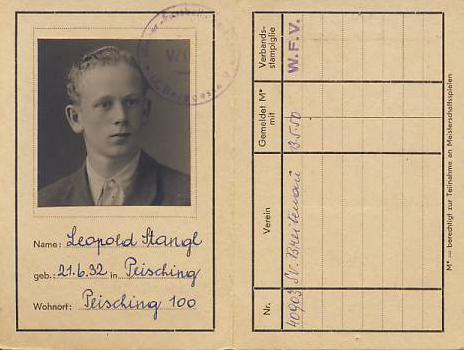 Name: Leopold Stangl
geb.: 21.6.32 in Peisching
Wohnort: Peisching 100
Nr.
Verein
Gemeldet M* mit
Verbands-
stampiglie
40903
SV. Breitenau
13.5.50
W.F.V.
M* = berechtigt zur Teilnahme an Meisterschaftsspielen